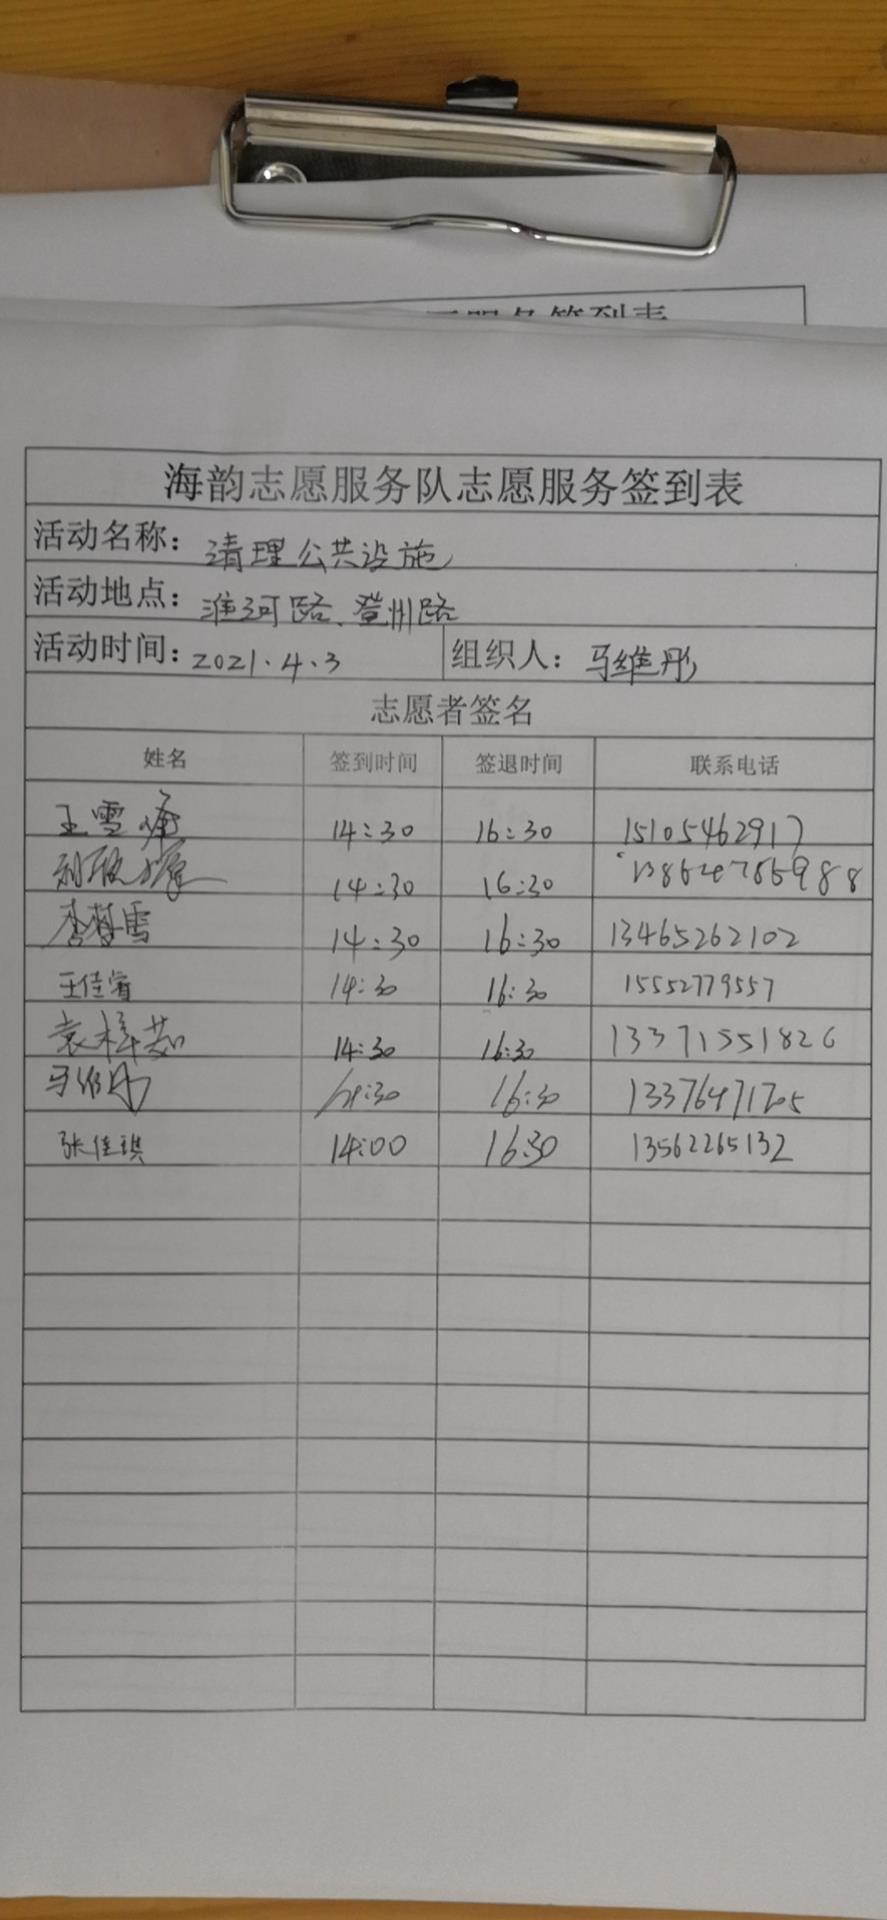 服务签到表
海韵志愿服务队志愿服务签到表
活动名称：清理公共设施
活动地点：淮河路、登州路
活动时间：2021.4.3 组织人：马维彤
志愿者签名
姓名 签到时间 签退时间 联系电话
王雪 14:30 16:30 15105462917
14:30 16:30
李梦雪 14:30 16:30 13465262102
王佳睿 14:30 16:30 15552779557
袁梓茹 14:30 16:30 13371551826
马维彤 14:30 16:30 13376471705
张佳琪 14:00 16:30 13562265132